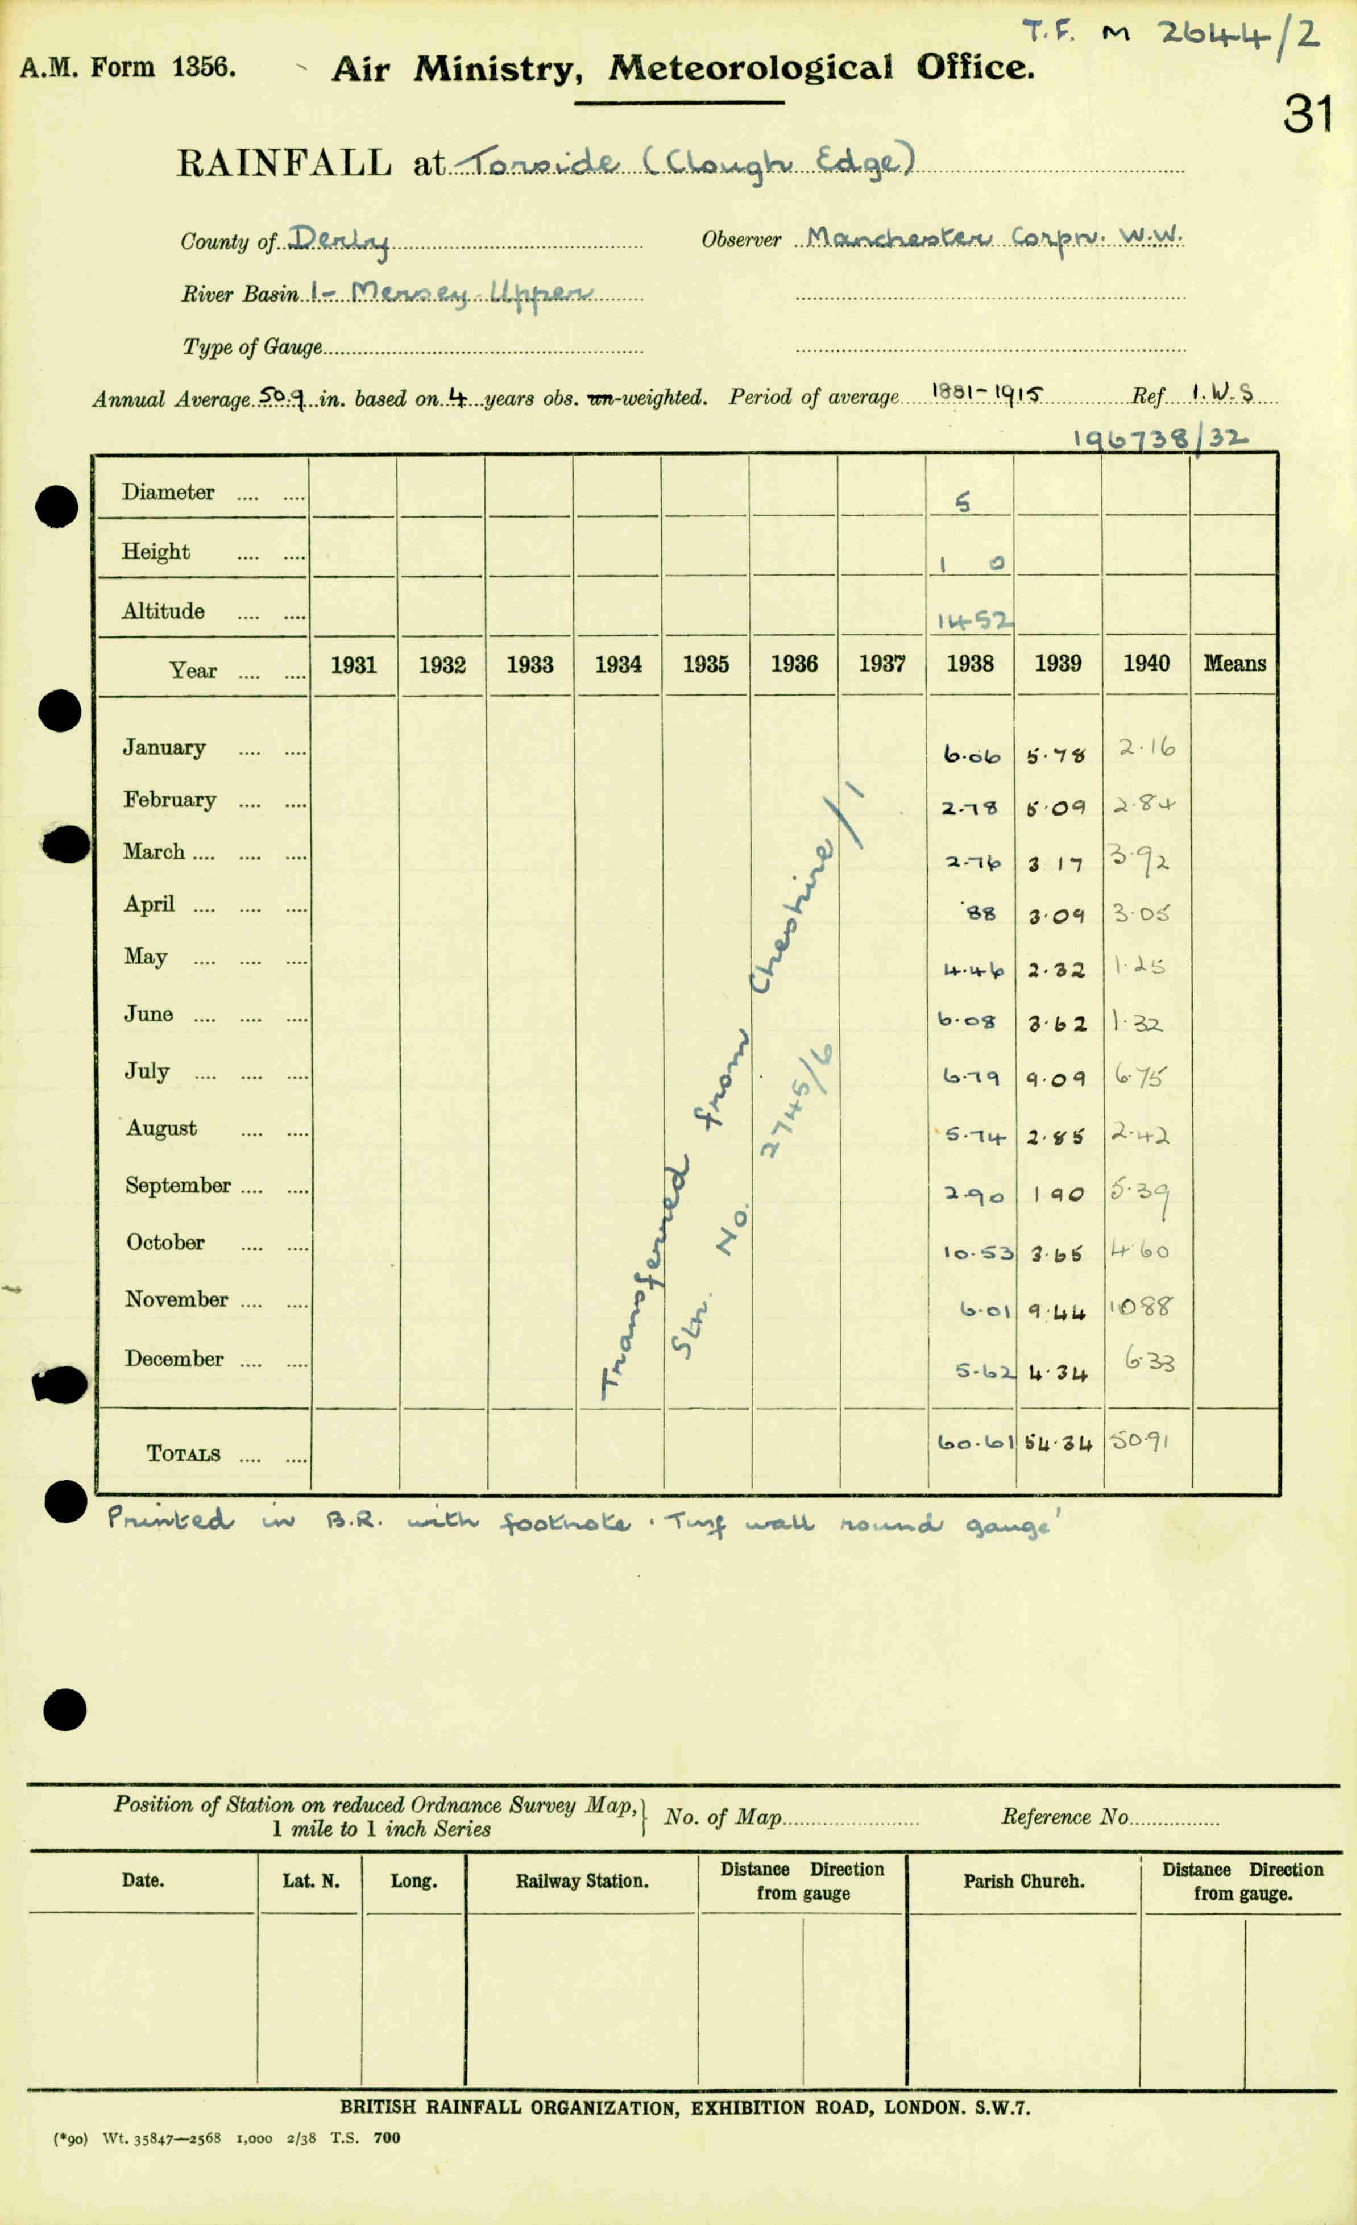 T.F. M 2644/2
A.M. Form 1356. Air Ministry, Meteorological Office.
31
RAINFALL at Torside (Clough Edge)
County of Derby Observer Manchester Corpn. W.W.
River Basin 1- Mersey Upper
Type of Gauge
Annual Average 50.9 in. based on 4 years obs. un-weighted. Period of average 1881-1915 Ref. I.W.S
196738/32
Diameter .... .... 5
Height .... .... 1 0
Altitude .... .... 1452
Year .... .... 1931 1932 1933 1934 1935 1936 1937 1938 1939 1940 Means
January .... .... 6.06 5.78 2.16
February .... .... 2.78 5.09 2.84
March .... .... .... 2.76 3 17 3.92
April .... .... .... .88 3.09 3.05
May .... .... .... 4.46 2.32 1.25
June .... .... .... 6.08 3.62 1.32
July .... .... .... 6.79 9.09 6.75
August .... .... 5.74 2.85 2.42
September .... .... 2.90 1 90 5.39
October .... .... 10.53 3.65 4.60
November .... .... 6.01 9.44 10.88
December .... .... 5.62 4.34 6.33
TOTALS .... .... 60.61 54.34 50.91
Transferred from Cheshire/1
Stn. No. 2745/6
Printed in B.R. with footnote 'Turf wall round gauge'
Position of Station on reduced Ordnance Survey Map, No. of Map Reference No.
1 mile to 1 inch Series
Date. Lat. N. Long. Railway Station. Distance Direction from gauge Parish Church. Distance Direction from gauge.
BRITISH RAINFALL ORGANIZATION, EXHIBITION ROAD, LONDON. S.W.7.
(*90) Wt. 35847—2568 1,000 2/38 T.S. 700